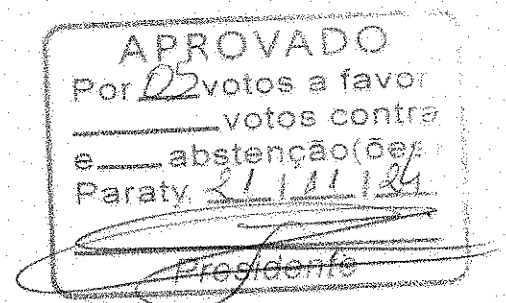 APROVADO
Por votos a favor
votos contra
e abstenção(ões)
Paraty, 21 / 11 / 24
Presidente